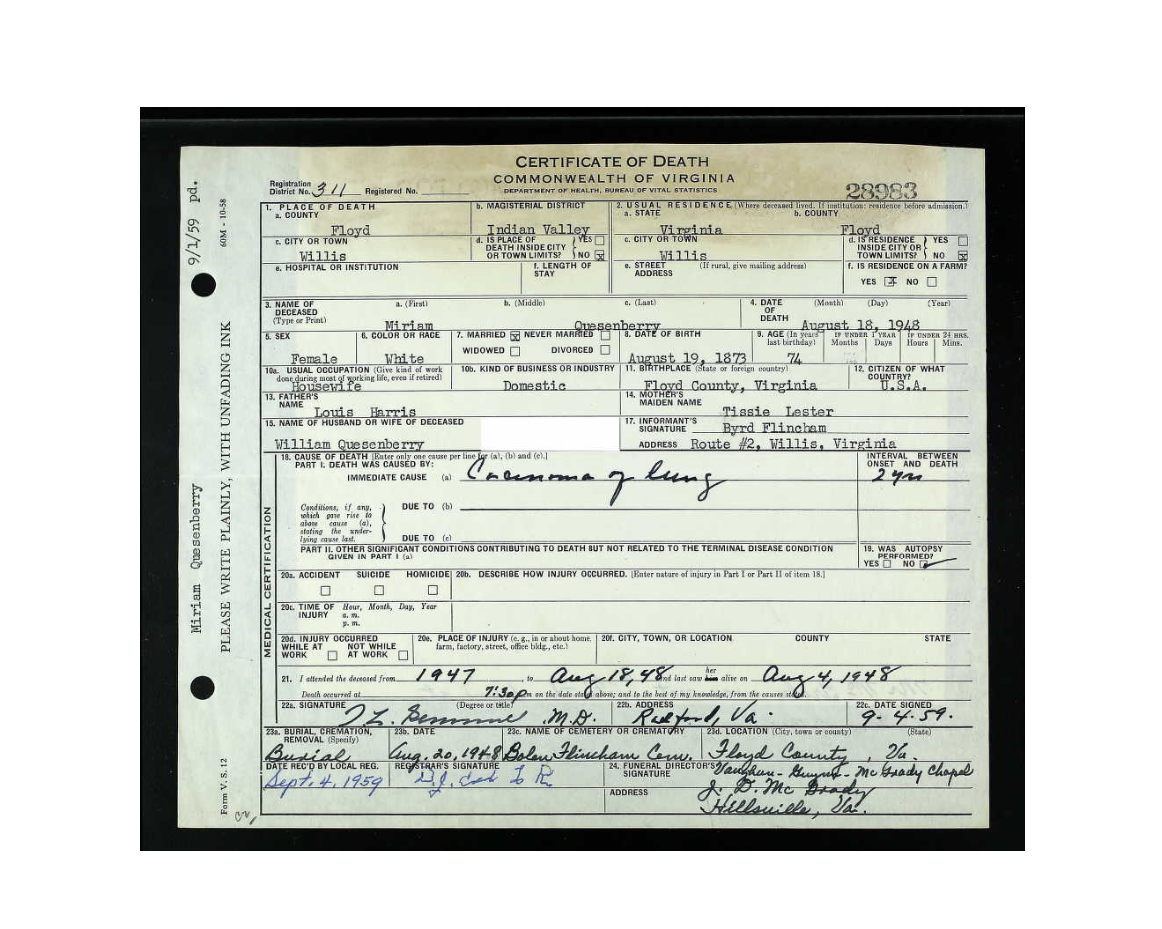 CERTIFICATE OF DEATH
COMMONWEALTH OF VIRGINIA
DEPARTMENT OF HEALTH, BUREAU OF VITAL STATISTICS
Registration District No. 311 Registered No.
28983
1. PLACE OF DEATH
a. COUNTY
Floyd
b. MAGISTERIAL DISTRICT
Indian Valley
2. USUAL RESIDENCE (Where deceased lived. If institution: residence before admission.)
a. STATE
Virginia
b. COUNTY
Floyd
c. CITY OR TOWN
Willis
d. IS PLACE OF DEATH INSIDE CITY OR TOWN LIMITS? YES NO
c. CITY OR TOWN
Willis
d. IS RESIDENCE INSIDE CITY OR TOWN LIMITS? YES NO
e. HOSPITAL OR INSTITUTION
f. LENGTH OF STAY
e. STREET ADDRESS (If rural, give mailing address)
f. IS RESIDENCE ON A FARM?
YES NO
3. NAME OF DECEASED (Type or Print)
a. (First) b. (Middle) c. (Last)
Miriam Quesenberry
4. DATE OF DEATH (Month) (Day) (Year)
August 18, 1948
5. SEX
Female
6. COLOR OR RACE
White
7. MARRIED NEVER MARRIED
WIDOWED DIVORCED
8. DATE OF BIRTH
August 19, 1873
9. AGE (In years last birthday)
74
IF UNDER 1 YEAR Months Days
IF UNDER 24 HRS. Hours Mins.
10a. USUAL OCCUPATION (Give kind of work done during most of working life, even if retired)
Housewife
10b. KIND OF BUSINESS OR INDUSTRY
Domestic
11. BIRTHPLACE (State or foreign country)
Floyd County, Virginia
12. CITIZEN OF WHAT COUNTRY?
U.S.A.
13. FATHER'S NAME
Louis Harris
14. MOTHER'S MAIDEN NAME
Tissie Lester
15. NAME OF HUSBAND OR WIFE OF DECEASED
William Quesenberry
17. INFORMANT'S SIGNATURE Byrd Flincham
ADDRESS Route #2, Willis, Virginia
18. CAUSE OF DEATH [Enter only one cause per line for (a), (b) and (c).]
PART I. DEATH WAS CAUSED BY:
IMMEDIATE CAUSE (a) Carcinoma of lung
INTERVAL BETWEEN ONSET AND DEATH
2 yrs
Conditions, if any, which gave rise to above cause (a), stating the underlying cause last.
DUE TO (b)
DUE TO (c)
PART II. OTHER SIGNIFICANT CONDITIONS CONTRIBUTING TO DEATH BUT NOT RELATED TO THE TERMINAL DISEASE CONDITION GIVEN IN PART I (a)
19. WAS AUTOPSY PERFORMED?
YES NO
20a. ACCIDENT SUICIDE HOMICIDE
20b. DESCRIBE HOW INJURY OCCURRED. [Enter nature of injury in Part I or Part II of item 18.]
20c. TIME OF INJURY Hour, Month, Day, Year
a. m.
p. m.
20d. INJURY OCCURRED
WHILE AT WORK NOT WHILE AT WORK
20e. PLACE OF INJURY (e. g., in or about home, farm, factory, street, office bldg., etc.)
20f. CITY, TOWN, OR LOCATION COUNTY STATE
21. I attended the deceased from 1947, to Aug 18, 48 and last saw her him alive on Aug 4, 1948
Death occurred at 7:30 p m on the date stated above; and to the best of my knowledge, from the causes stated.
22a. SIGNATURE (Degree or title)
M.D.
22b. ADDRESS
Radford, Va.
22c. DATE SIGNED
9-4-59.
23a. BURIAL, CREMATION, REMOVAL (Specify)
Burial
23b. DATE
Aug. 20, 1948
23c. NAME OF CEMETERY OR CREMATORY
Bolen Flincham Cem.
23d. LOCATION (City, town or county) (State)
Floyd County, Va.
DATE REC'D BY LOCAL REG.
Sept. 4, 1959
REGISTRAR'S SIGNATURE
24. FUNERAL DIRECTOR'S SIGNATURE
Vaughan-Guynn-McGrady Chapel
J. D. McGrady
ADDRESS
Hillsville, Va.
MEDICAL CERTIFICATION
9/1/59 pd.
60M - 10-58
PLEASE WRITE PLAINLY, WITH UNFADING INK
Miriam Quesenberry
Form V. S. 12